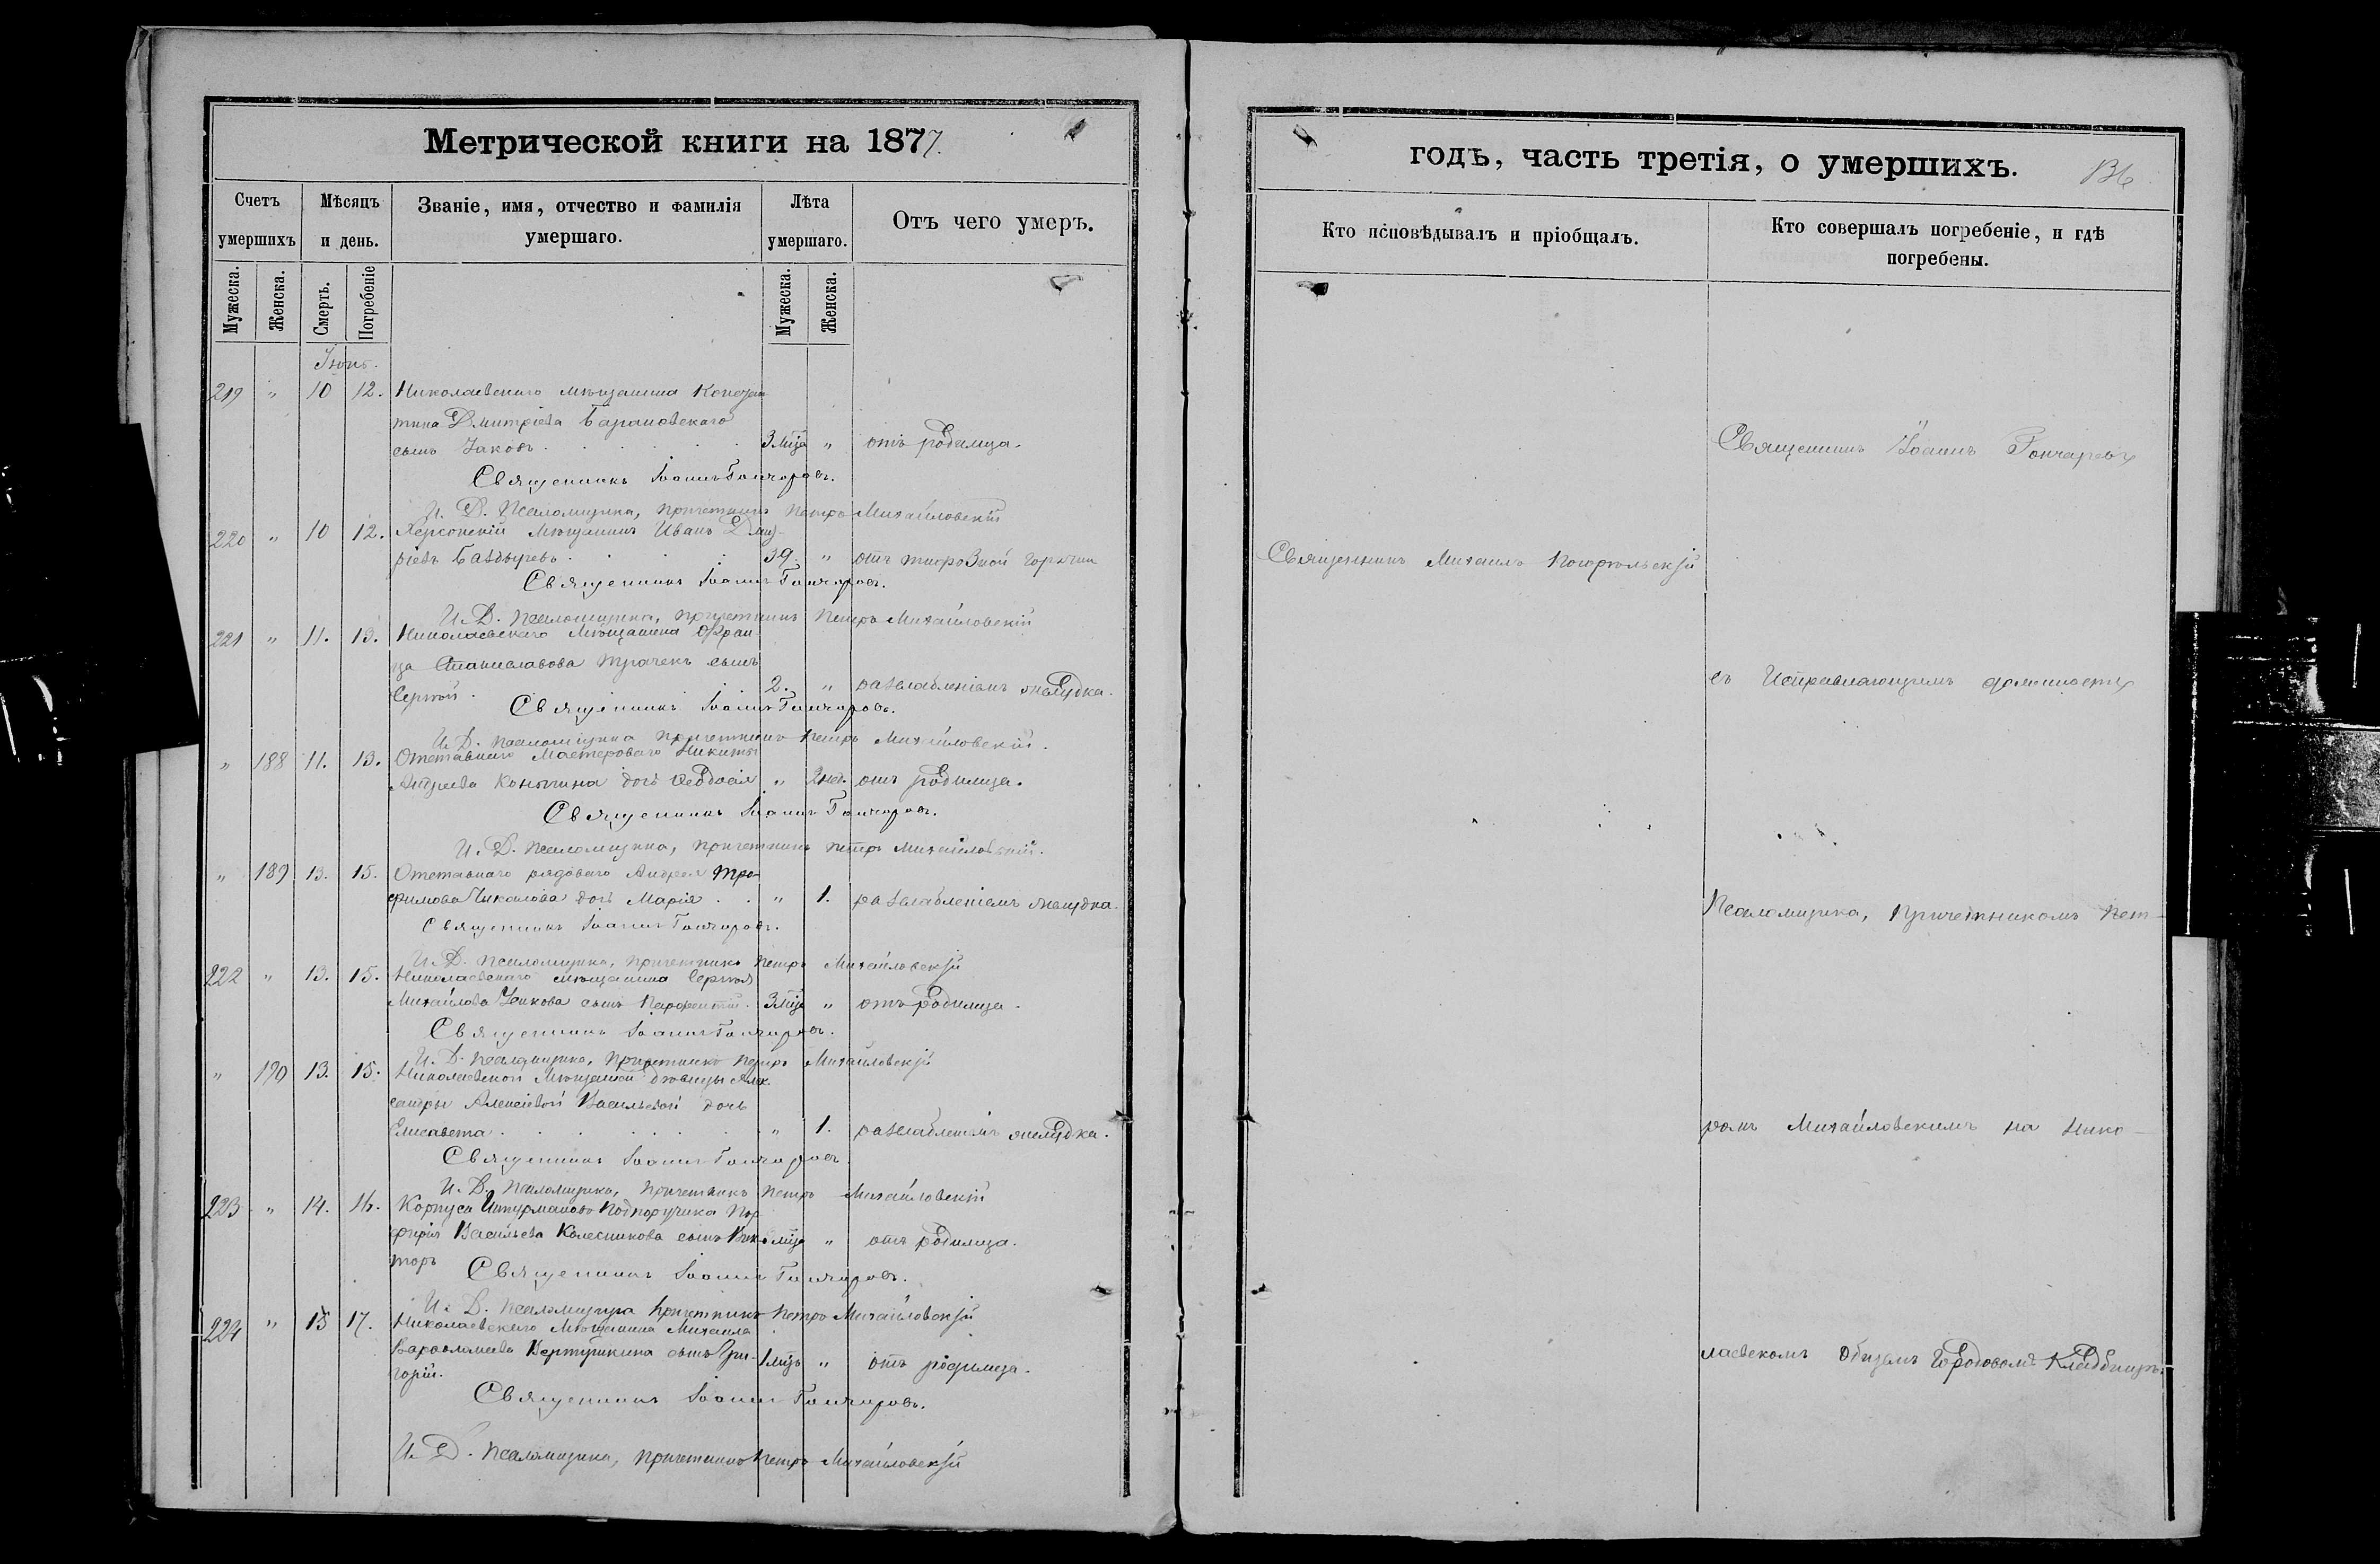 Метрической книги на 1877.
Счетъ умершихъ
Мѣсяцъ и день.
Званіе, имя, отчество и фамилія умершаго.
Лѣта умершаго.
Отъ чего умеръ.
Мужеска.
Женска.
Смерть.
Погребеніе
Мужеска.
Женска.
Іюнь.
219 " 10 12. Николаевскаго мѣщанина Констан
тина Дмитріева Барановскаго
сынъ Іаковъ 3 мца " отъ родимца.
Священникъ Іоаннъ Гончаровъ.
И. Д. Псаломщика, причетникъ Петръ Михайловскій
220 " 10 12. Херсонскій мѣщанинъ Иванъ Дмит-
ріевъ 39. " отъ тифозной горячки
Священникъ Іоаннъ Гончаровъ.
И. Д. Псаломщика, причетникъ Петръ Михайловскій
221 " 11. 13. Николаевскаго мѣщанина Фран
ца Станиславова Трачекъ сынъ
Сергѣй. 2. " разслабленіемъ желудка.
Священникъ Іоаннъ Гончаровъ.
И. Д. Псаломщика причетникъ Петръ Михайловскій.
" 188 11. 13. Отставнаго Мастероваго Никиты
Андреева дочь Феодосія " 2 нед. отъ родимца.
Священникъ Іоаннъ Гончаровъ.
И. Д. Псаломщика, причетникъ Петръ Михайловскій.
" 189 13. 15. Отставнаго рядоваго Андрея Тро
фимова Чикалова дочь Марія . . " 1. разслабленіемъ желудка.
Священникъ Іоаннъ Гончаровъ.
И. Д. Псаломщика, причетникъ Петръ Михайловскій
222 " 13. 15. Николаевскаго мѣщанина Сергѣя
Михайлова сынъ Парфентій. 3 мца " отъ родимца.
Священникъ Іоаннъ Гончаровъ.
И. Д. Псаломщика, причетникъ Петръ Михайловскій
" 190 13. 15. Николаевской мѣщанки дѣвицы Алек
сандры Алексіевой Васильевой дочь
Елисавета " 1. разслабленіемъ желудка.
Священникъ Іоаннъ Гончаровъ
И. Д. Псаломщика, причетникъ Петръ Михайловскій
223 " 14. 16. Корпуса Штурмановъ Подпоручика Пор
фирія Васильева Колесникова сынъ Вик мца " отъ родимца.
торъ
Священникъ Іоаннъ Гончаровъ.
И. Д. Псаломщика причетникъ Петръ Михайловскій
224 " 15 17. Николаевскаго мѣщанина Михаила
Варфоламеева Вертушкина сынъ Гри- 1 мцъ " отъ родимца.
горій.
Священникъ Іоаннъ Гончаровъ.
И. Д. Псаломщика, причетникъ Петръ Михайловскій
годъ, часть третія, о умершихъ.
136
Кто исповѣдывалъ и пріобщалъ.
Кто совершалъ погребеніе, и гдѣ погребены.
Священникъ Іоаннъ Гончаровъ
Священникъ Михаилъ
съ Исправляющимъ должность
Псаломщика, Причетникомъ Пет-
ромъ Михайловскимъ на Нико-
лаевскомъ Общемъ Городовомъ Кладбищѣ.